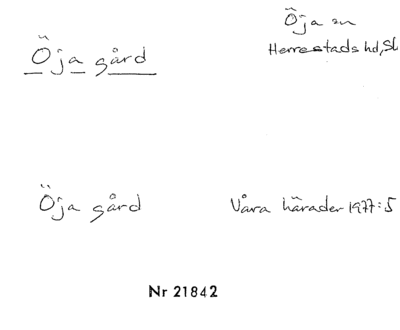 Öja sn
Herrestads hd, Sk
Öja gård
Öja gård
Våra härader 1977:5
Nr 21842